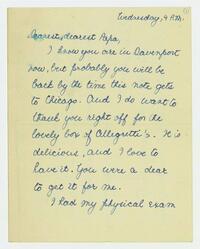 (1)
Wednesday, 9 P.M.
Dearest, dearest Papa,
I know you are in Davenport
now, but probably you will be
back by the time this note gets
to Chicago. And I do want to
thank you right off for the
lovely box of Allegretti's. It is
delicious, and I love to
have it. You were a dear
to get it for me.
I had my physical exam